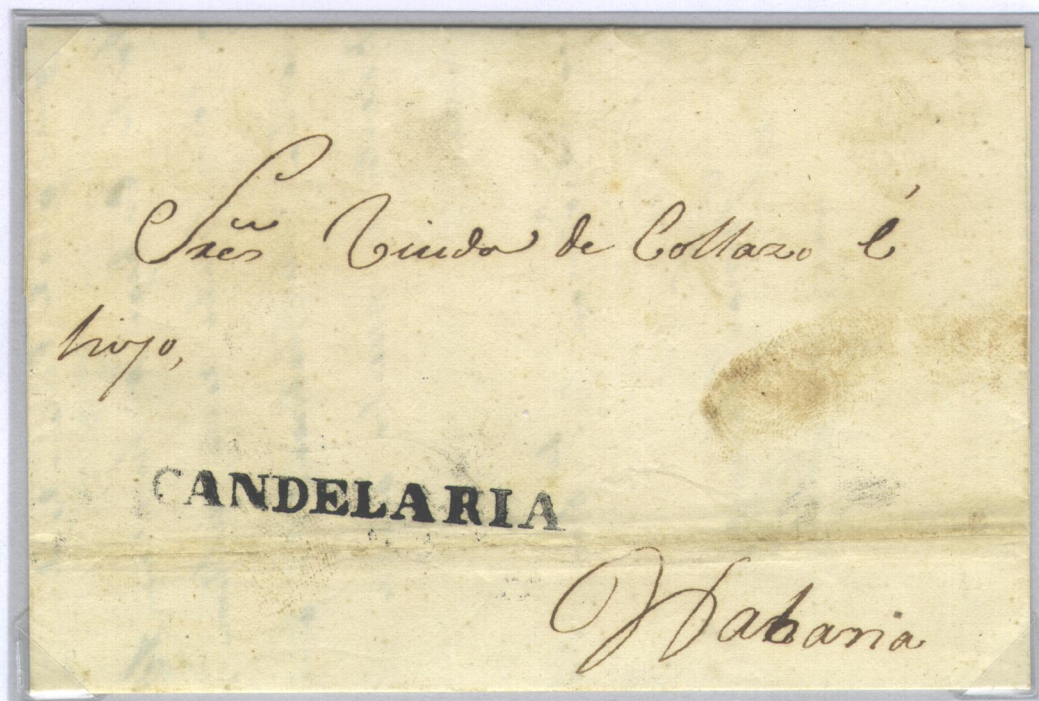 Sres Viuda de Collazo é
hijo,
CANDELARIA
Habana